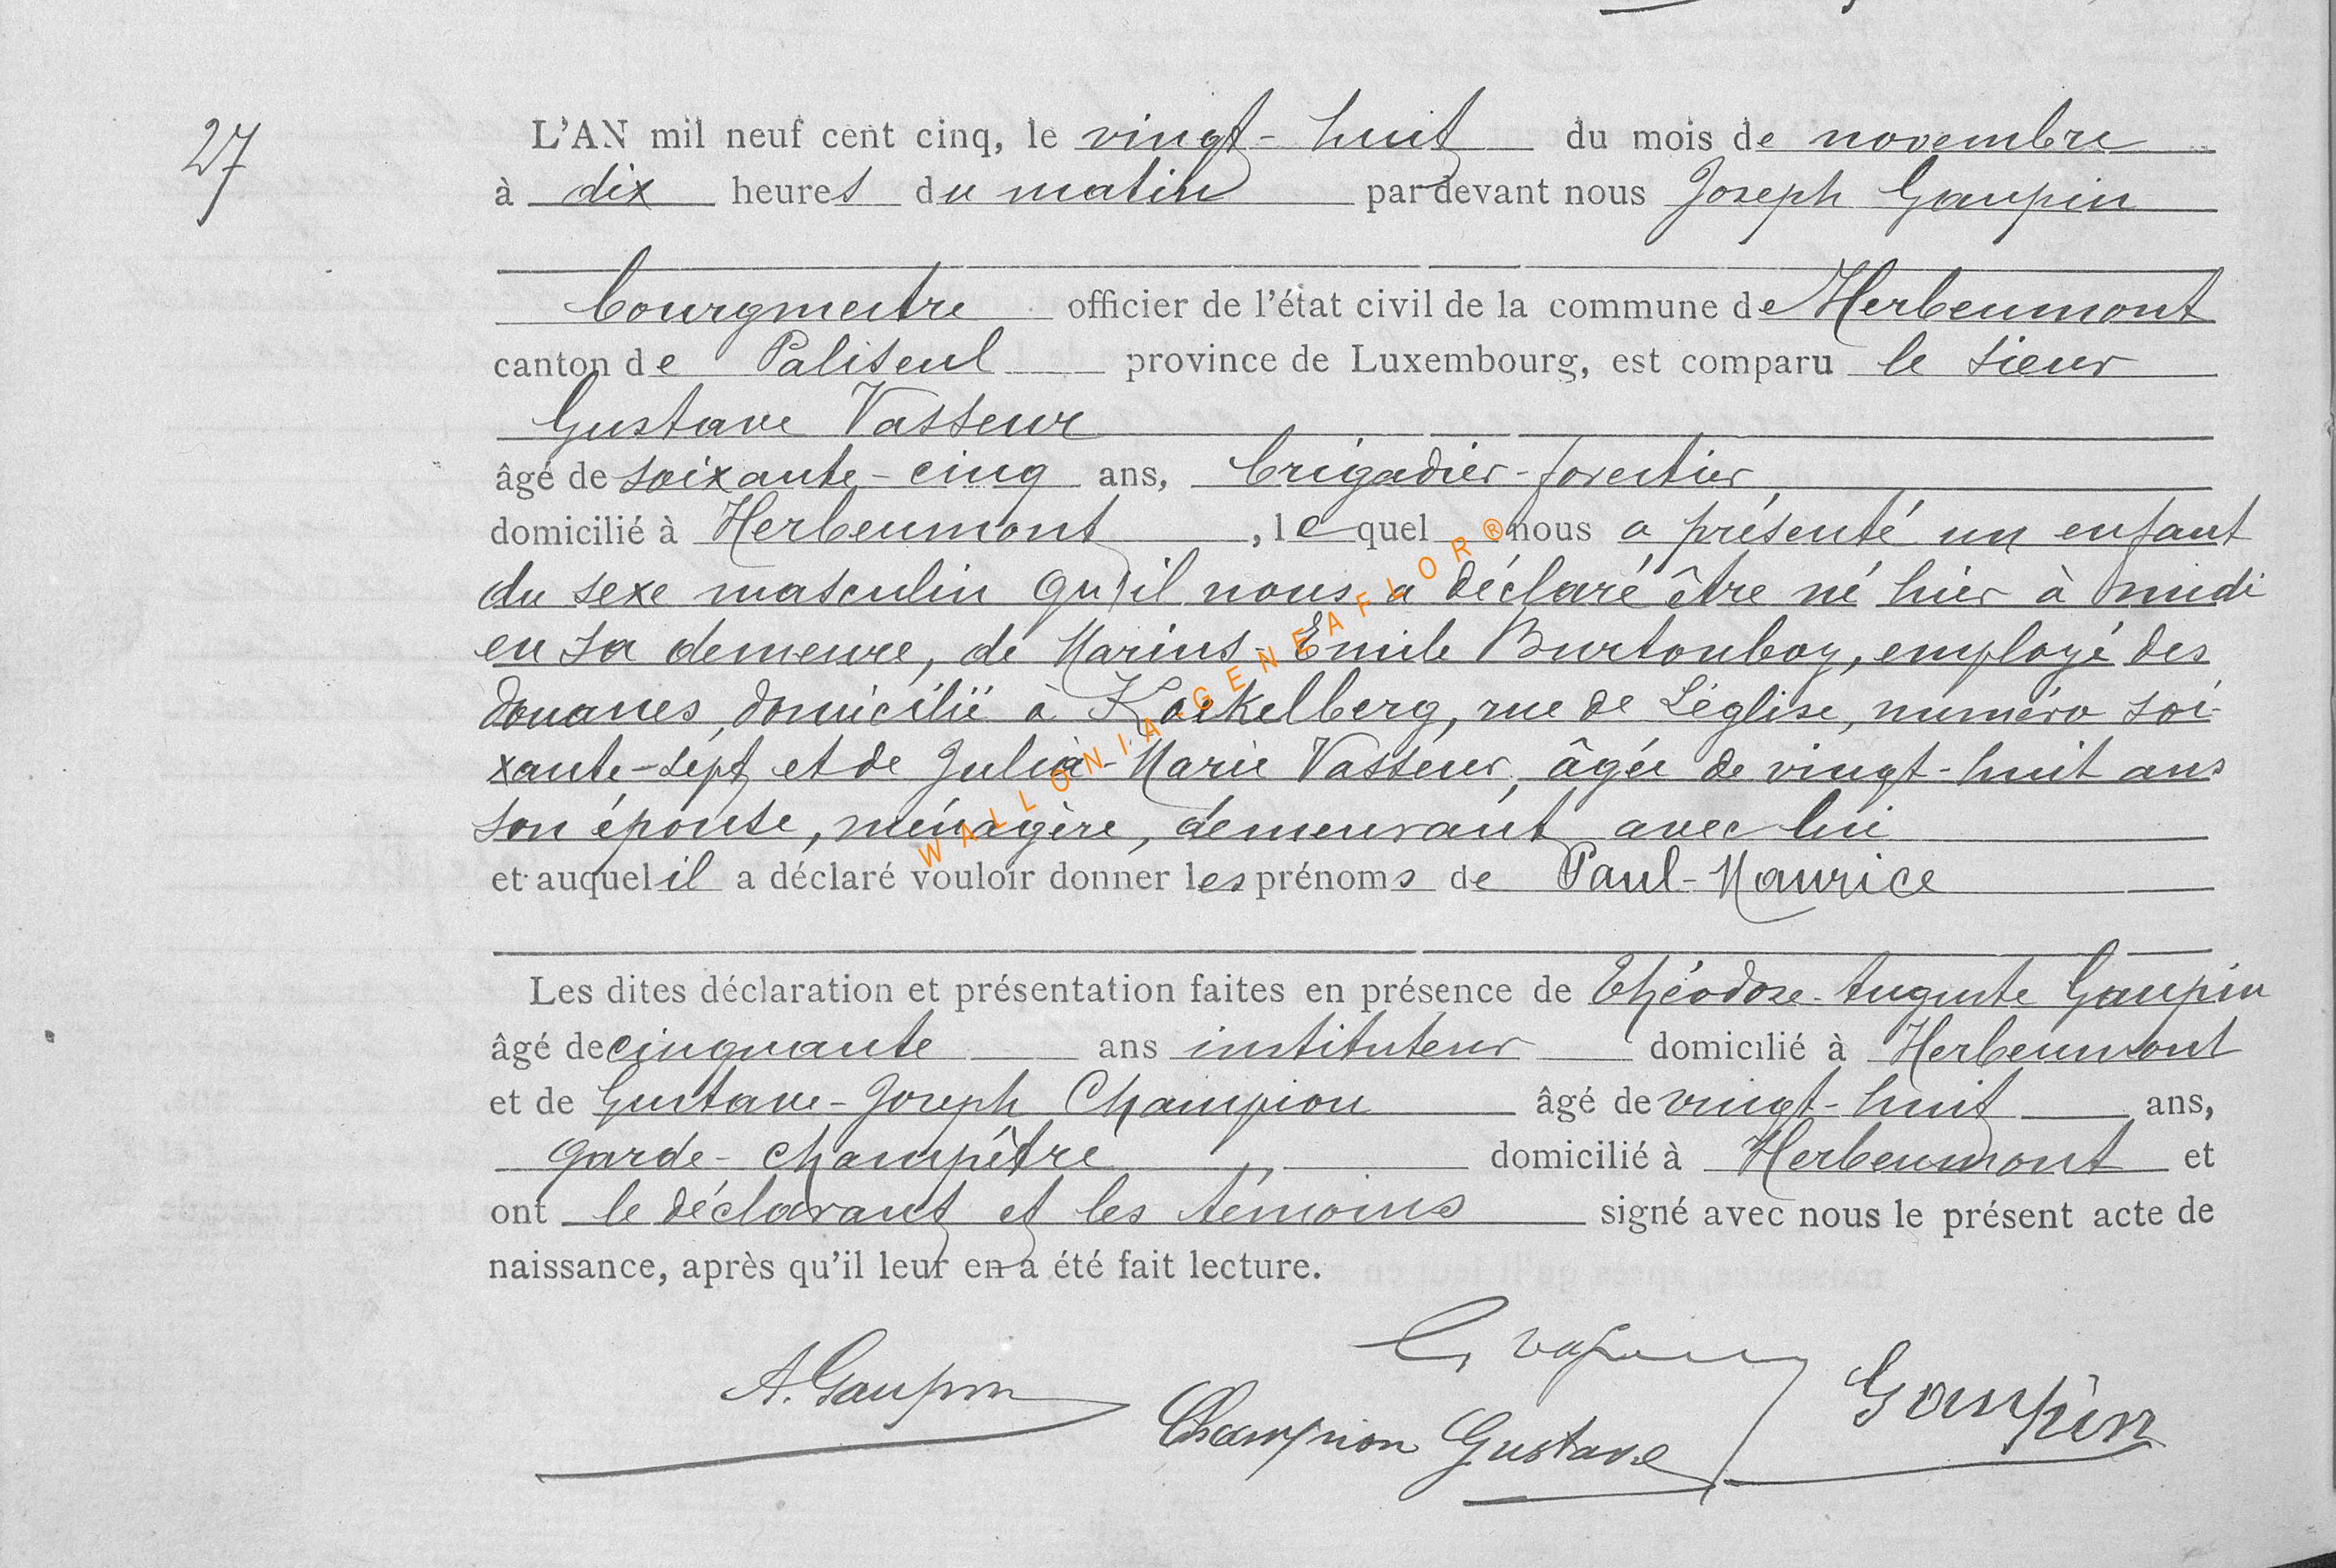 27
L'AN mil neuf cent cinq, le vingt-huit du mois de novembre
à dix heures du matin pardevant nous Joseph Gaupin
bourgmestre officier de l'état civil de la commune de Herbeumont
canton de Paliseul province de Luxembourg, est comparu le sieur
Gustave Vasseur
âgé de soixante-cinq ans, brigadier-forestier
domicilié à Herbeumont, lequel nous a présenté un enfant
du sexe masculin qu'il nous a déclaré être né hier à midi
en sa demeure, de Marius-Emile Burtonboy, employé des
douanes, domicilié à Koekelberg, rue de L'église, numéro soi-
xante-sept et de Julia-Marie Vasseur, âgée de vingt-huit ans
son épouse, ménagère, demeurant avec lui
et auquel il a déclaré vouloir donner les prénoms de Paul-Maurice
Les dites déclaration et présentation faites en présence de Théodore-Auguste Gaupin
âgé de cinquante ans instituteur domicilié à Herbeumont
et de Gustave-Joseph Champion âgé de vingt-huit ans,
garde-champêtre domicilié à Herbeumont et
ont le déclarant et les témoins signé avec nous le présent acte de
naissance, après qu'il leur en a été fait lecture.
A. Gaupin
Champion Gustave
Gaupin
WALLONIA-GENEAFLOR®